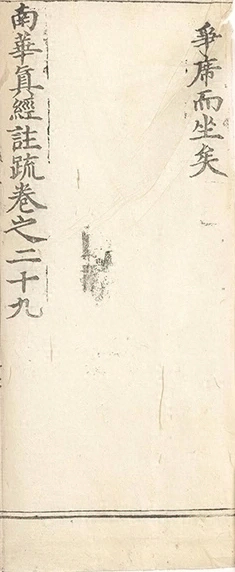 爭席而坐矣
南華真經註䟽卷之二十九